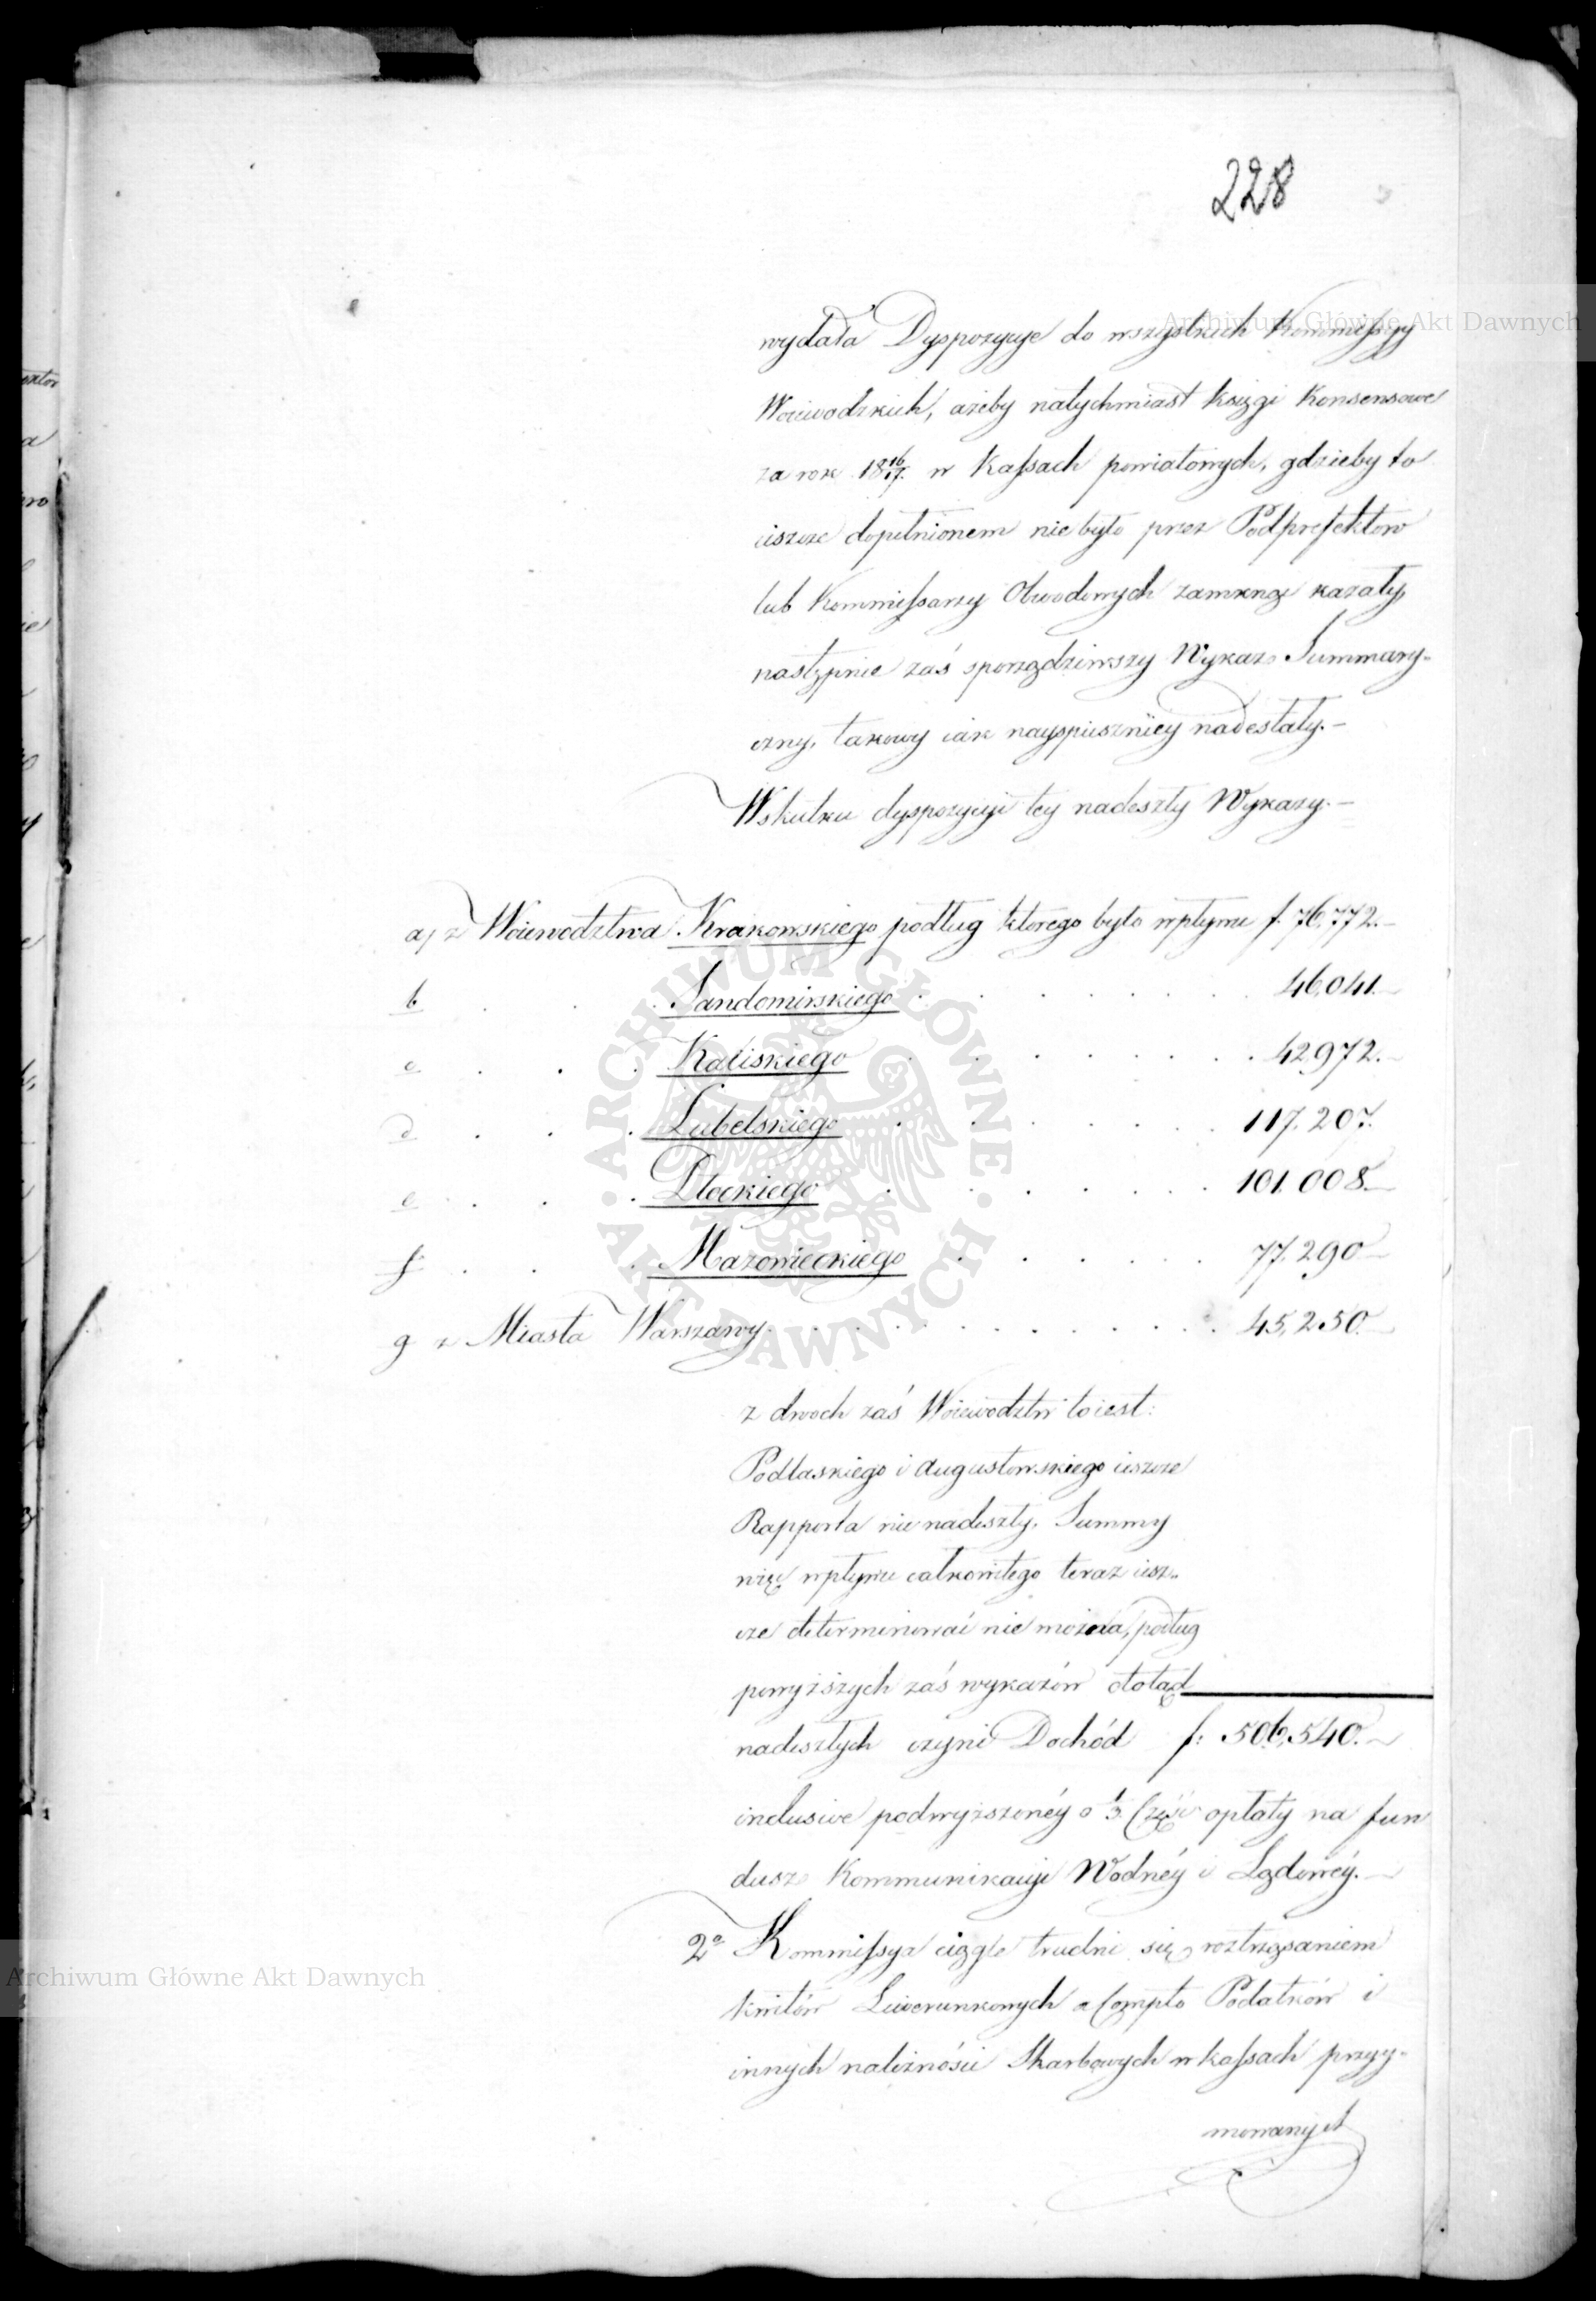 228
wydała Dyspozycye do wszystkich Kommissyy
Woiewodzkich, ażeby natychmiast księgi Konsensowe
za rok 18 16/17. w Kassach powiatowych, gdzieby to
ieszcze dopełnionem nie było przez Podprefektow
lub Kommissarzy Obwodowych zamknąć kazały,
następnie zaś sporządziwszy Wykaz Summary-
czny, takowy iak nayspieszniéy nadesłały.-
Wskutku dyspozycyi tey nadeszły Wykazy.-
a) z Woiewodztwa Krakowskiego podług ktorego było wpływu f. 76,772.-
b . . . Sandomirskiego . . . . . . 46,041.-
c . . . Kaliskiego . . . . . . 42,972.-
d . . . Lubelskiego . . . . . . 117.207.
e . . . Płockiego . . . . . . 101.008.-
f . . . Mazowieckiego . . . . . 77.290-
g z Miasta Warszawy . . . . . . . . 45,250.-
z dwoch zaś Woiewodztw to iest:
Podlaskiego i Augustowskiego ieszcze
Rapporta nie nadeszły, Summy
więc wpływu całkowitego teraz iesz-
cze determinować nie można, podług
powyższych zaś wykazów dotąd
nadeszłych czyni Dochód f: 506,540.-
inclusive podwyższonéy o 1/3 Część opłaty na fun
dusz Kommunikacyi Wodnéy i Lądowéy.-
2o Kommissya ciągle trudni się roztrząsaniem
kwitów Liwerunkowych a Compto Podatków i
innych należności Skarbowych w kassach przyy-
mowanych
Archiwum Główne Akt Dawnych
Archiwum Główne Akt Dawnych
ARCHIWUM GŁÓWNE · AKT DAWNYCH ·